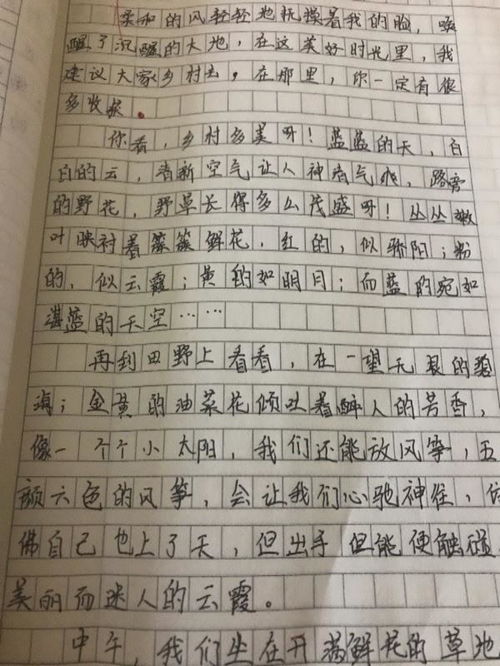 柔和的风轻轻地抚摸着我的脸，唤
醒了沉醒的大地，在这美好时光里，我
建议大家乡村去，在那里，你一定有很
多收获。
你看，乡村多美呀！蓝蓝的天，白
白的云，清新空气让人神清气爽，路旁
的野花，野草长得多么茂盛呀！丛丛嫩
叶映衬着簇簇鲜花，红的，似骄阳；粉
的，似云霞；黄的如明月；而蓝的宛如
湛蓝的天空……
再到田野上看看，在一望无垠的
海；金黄的油菜花倾吐着醉人的芳香，
像一个个小太阳，我们还能放风筝，五
颜六色的风筝，会让我们心驰神往，仿
佛自己也上了天，但出手但能便触碰
美丽而迷人的云霞。
中午，我们坐在开满鲜花的草地